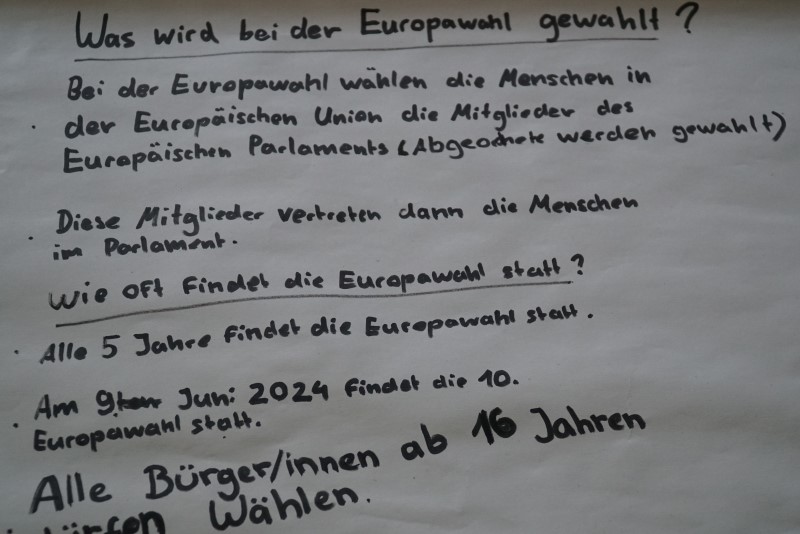 Was wird bei der Europawahl gewahlt?
Bei der Europawahl wählen die Menschen in
der Europäischen Union die Mitglieder des
Europäischen Parlaments (Abgeochete werden gewahlt)
Diese Mitglieder vertreten dann die Menschen
im Parlament.
Wie oft findet die Europawahl statt?
Alle 5 Jahre findet die Europawahl statt.
Am 9ten Juni 2024 findet die 10.
Europawahl statt.
Alle Bürger/innen ab 16 Jahren
dürfen Wählen.